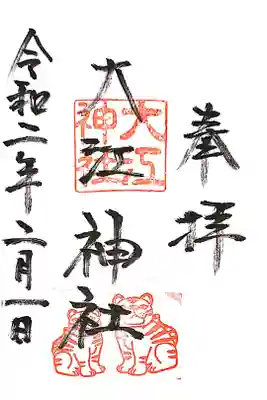 奉拝
大江神社
令和二年二月一日
大江
神社